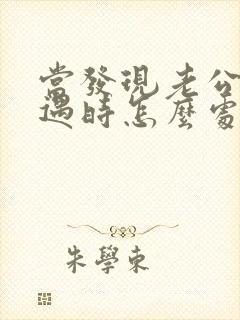 當發現老公
遇時怎麼處
朱學東